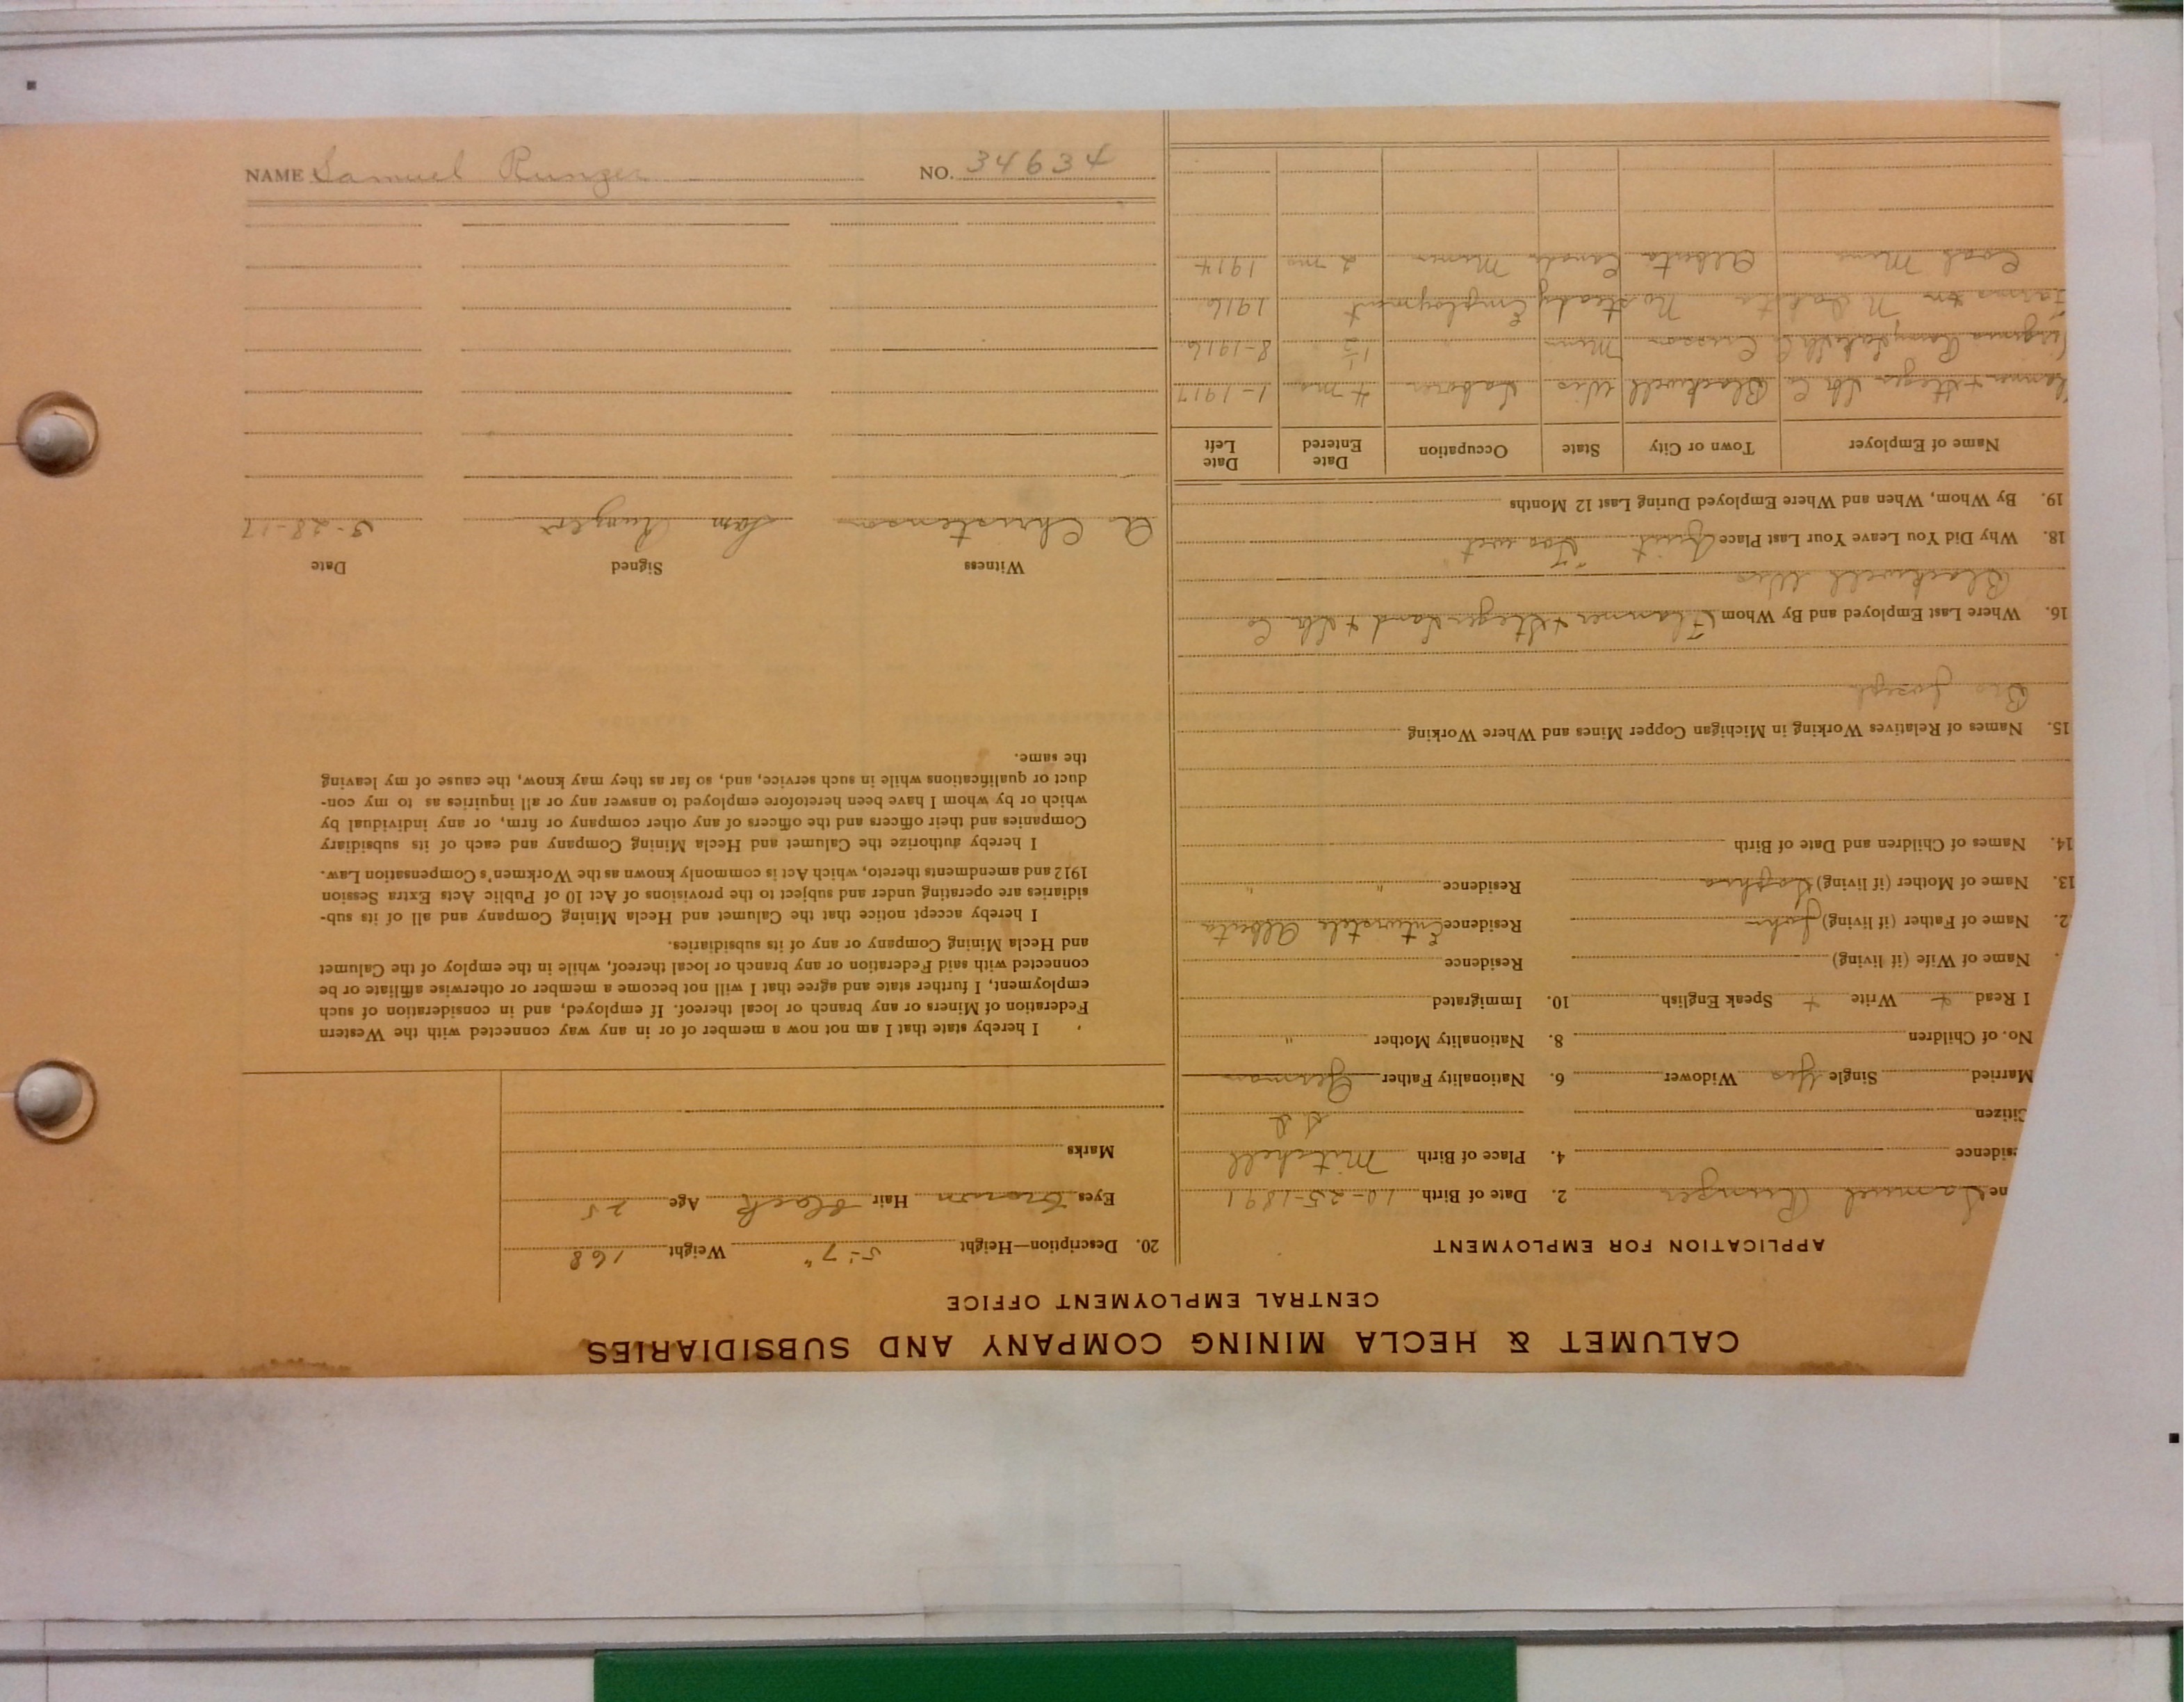 CALUMET & HECLA MINING COMPANY AND SUBSIDIARIES
CENTRAL EMPLOYMENT OFFICE
APPLICATION FOR EMPLOYMENT
me Samuel Runger 2. Date of Birth 10-25-1891
sidence 4. Place of Birth Mitchell
Citizen S D
Married Single Yes Widower 6. Nationality Father German
No. of Children 8. Nationality Mother "
I Read + Write + Speak English 10. Immigrated
. Name of Wife (if living) Residence
2. Name of Father (if living) John Residence Alberta
13. Name of Mother (if living) Sophia Residence " "
14. Names of Children and Date of Birth
15. Names of Relatives Working in Michigan Copper Mines and Where Working
Bro Joseph
16. Where Last Employed and By Whom Flanner + Steger Land + Lbr Co
Blackwell Wis
18. Why Did You Leave Your Last Place Quit Too wet
19. By Whom, When and Where Employed During Last 12 Months
Name of Employer Town or City State Occupation Date Entered Date Left
Flanner + Steger Lbr Co Blackwell Wis Laborer 4 mo 1-1917
Minn 8-1916
Farms in N Dakota No steady Employment 1916
Coal Mine Alberta Canada Miner 2 mo 1914
20. Description—Height 5' 7" Weight 168
Eyes brown Hair black Age 25
Marks
I hereby state that I am not now a member of or in any way connected with the Western
Federation of Miners or any branch or local thereof. If employed, and in consideration of such
employment, I further state and agree that I will not become a member or otherwise affiliate or be
connected with said Federation or any branch or local thereof, while in the employ of the Calumet
and Hecla Mining Company or any of its subsidiaries.
I hereby accept notice that the Calumet and Hecla Mining Company and all of its sub-
sidiaries are operating under and subject to the provisions of Act 10 of Public Acts Extra Session
1912 and amendments thereto, which Act is commonly known as the Workmen's Compensation Law.
I hereby authorize the Calumet and Hecla Mining Company and each of its subsidiary
Companies and their officers and the officers of any other company or firm, or any individual by
which or by whom I have been heretofore employed to answer any or all inquiries as to my con-
duct or qualifications while in such service, and, so far as they may know, the cause of my leaving
the same.
Witness Signed Date
A Christenson Sam Runger 3-28-17
NAME Samuel Runger NO. 34634